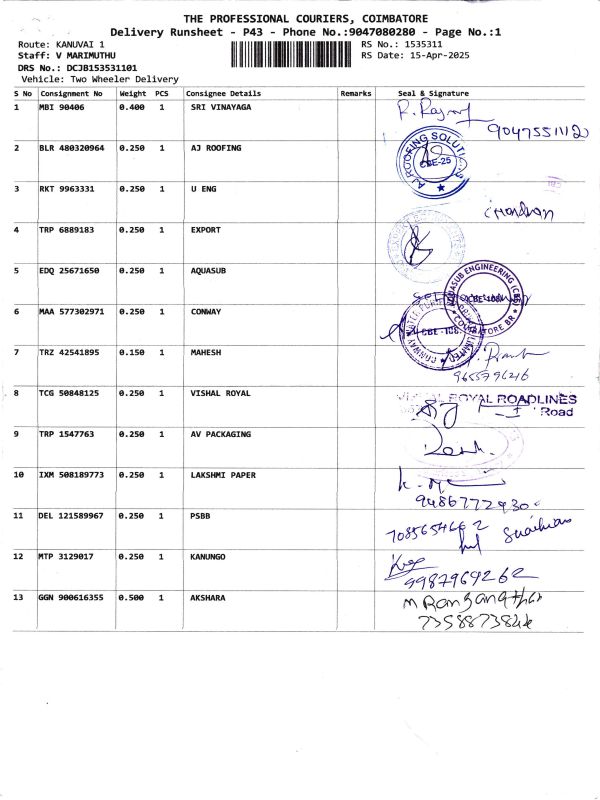 THE PROFESSIONAL COURIERS, COIMBATORE
Delivery Runsheet - P43 - Phone No.:9047080280 - Page No.:1
Route: KANUVAI 1
RS No.: 1535311
Staff: V MARIMUTHU
RS Date: 15-Apr-2025
DRS No.: DCJB153531101
Vehicle: Two Wheeler Delivery
S No Consignment No Weight PCS Consignee Details Remarks Seal & Signature
1 MBI 90406 0.400 1 SRI VINAYAGA
9047551112
2 BLR 480320964 0.250 1 AJ ROOFING
AJ ROOFING SOLUTIONS
CBE-25
3 RKT 9963331 0.250 1 U ENG
4 TRP 6889183 0.250 1 EXPORT
5 EDQ 25671650 0.250 1 AQUASUB
AQUASUB ENGINEERING (CBE)
COIMBATORE BR
6 MAA 577302971 0.250 1 CONWAY
7 TRZ 42541895 0.150 1 MAHESH
9655796216
8 TCG 50848125 0.250 1 VISHAL ROYAL
VISHAL ROYAL ROADLINES
Road
9 TRP 1547763 0.250 1 AV PACKAGING
10 IXM 508189773 0.250 1 LAKSHMI PAPER
9486772930
11 DEL 121589967 0.250 1 PSBB
7085654662
12 MTP 3129017 0.250 1 KANUNGO
9987969262
13 GGN 900616355 0.500 1 AKSHARA